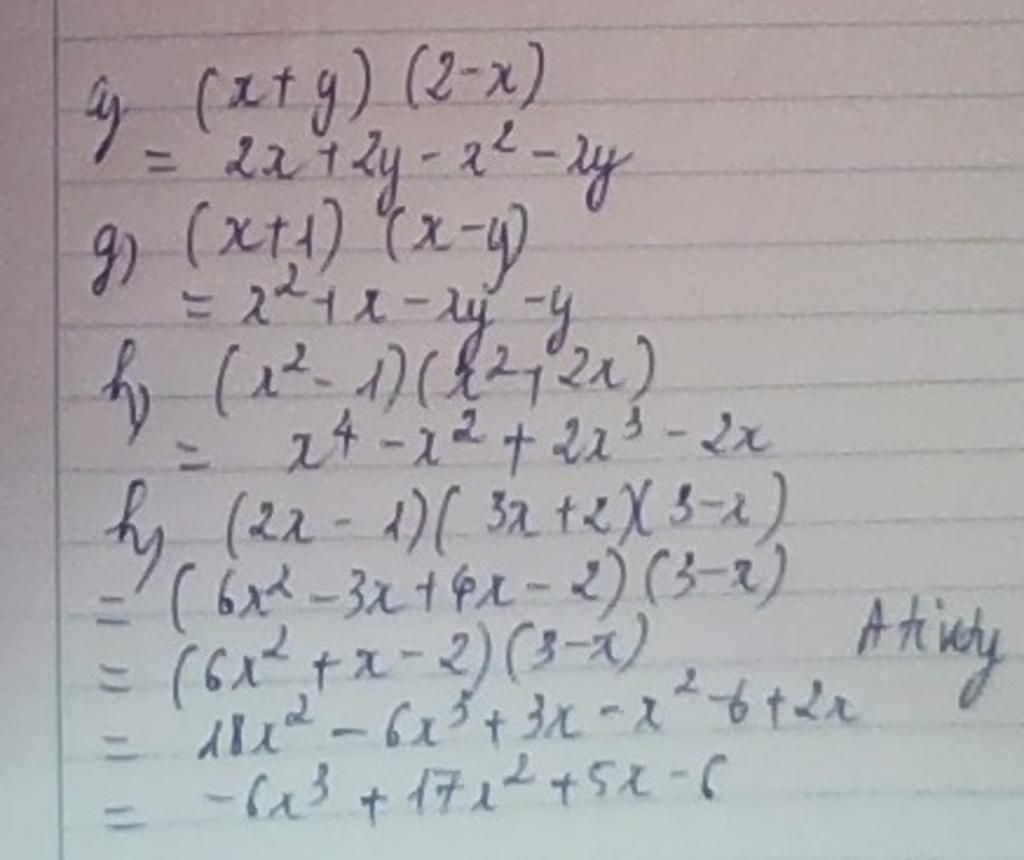 g) (x + y) (2-x)
= 2x + 2y - x² - xy
g) (x+1) (x-y)
= x² + x - xy - y
h) (x² - 1)(x² + 2x)
= x⁴ - x² + 2x³ - 2x
h) (2x - 1)(3x + 2)(3-x)
= (6x² - 3x + 4x - 2)(3-x)
= (6x² + x - 2)(3-x)
= 18x² - 6x³ + 3x - x² - 6 + 2x
= -6x³ + 17x² + 5x - 6